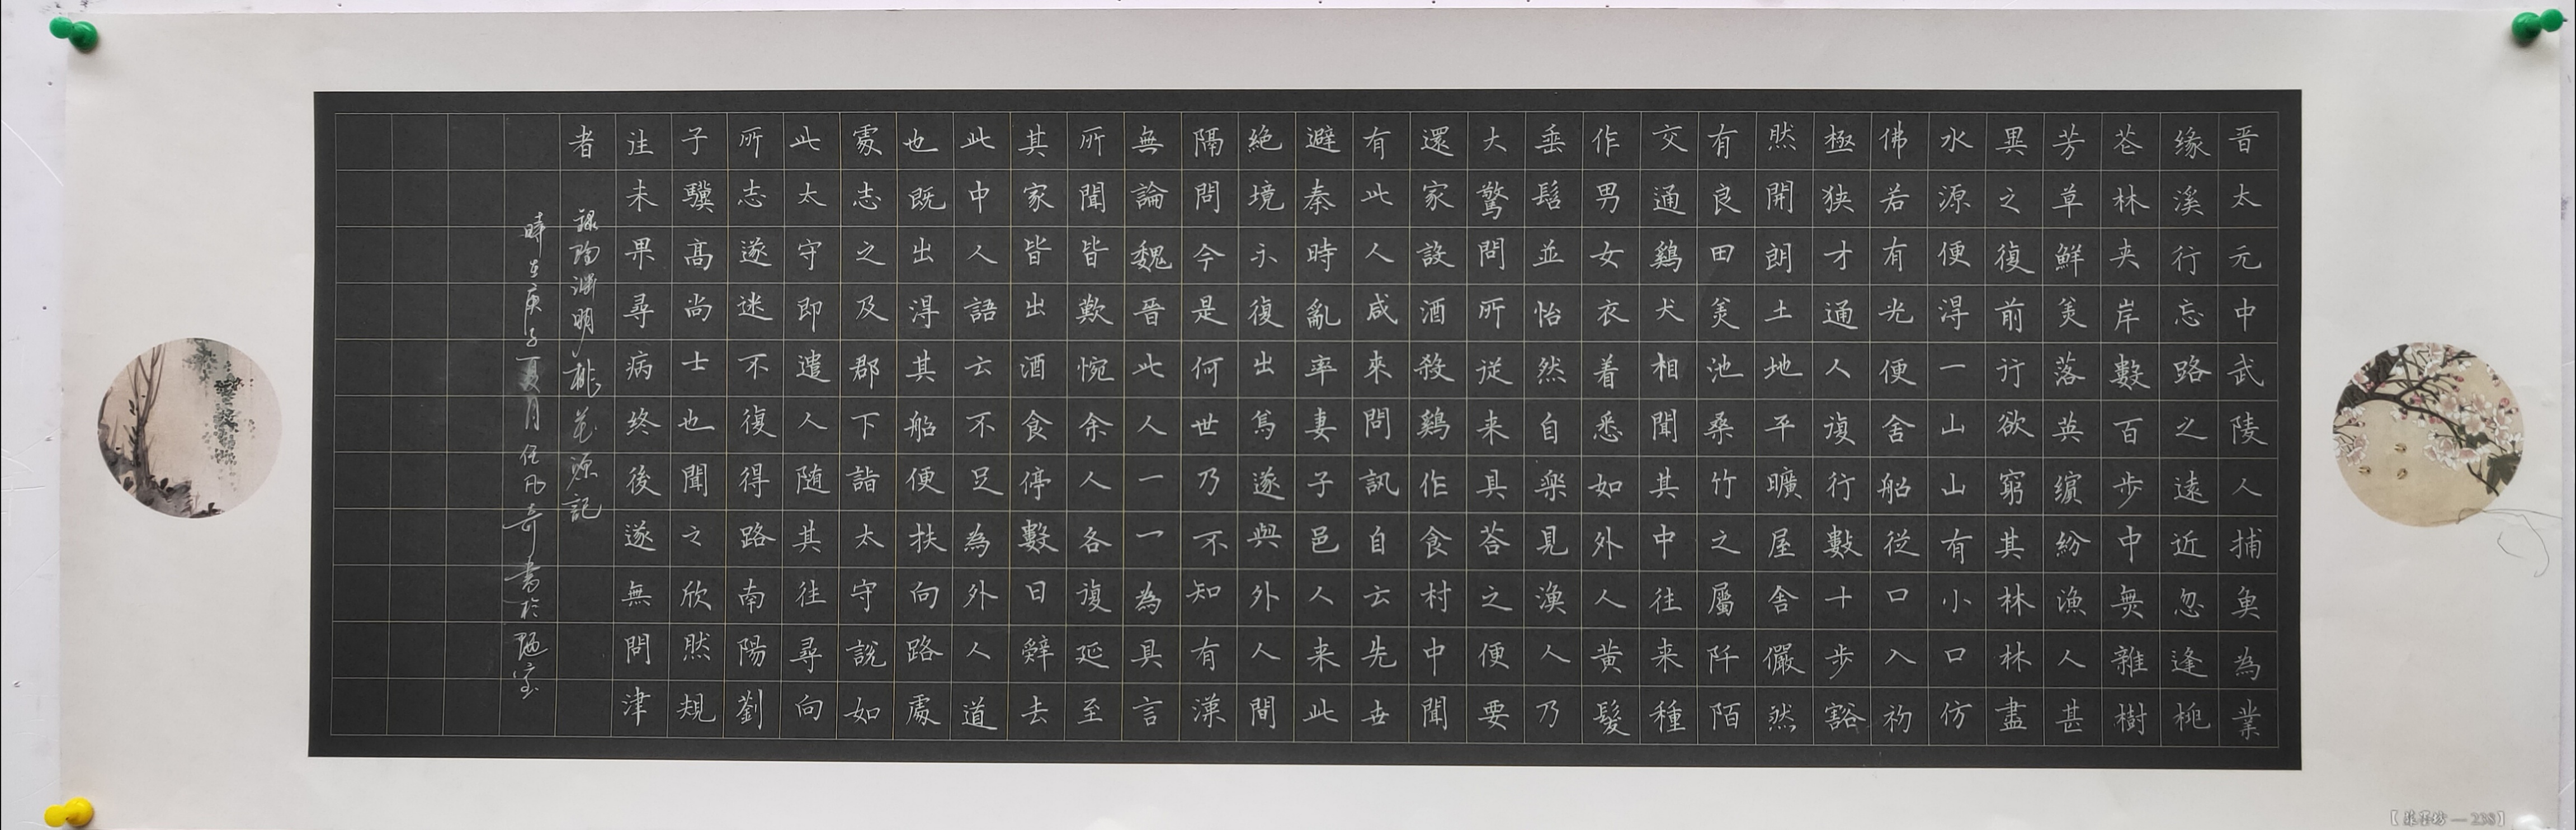 晋太元中武陵人捕魚為業
缘溪行忘路之遠近忽逢桃
花林夹岸數百步中無雜樹
芳草鮮美落英缤紛漁人甚
異之復前行欲窮其林林盡
水源便得一山山有小口仿
佛若有光便舍船從口入初
極狭才通人復行數十步豁
然開朗土地平曠屋舍儼然
有良田美池桑竹之屬阡陌
交通鷄犬相聞其中往来種
作男女衣着悉如外人黄髮
垂髫並怡然自樂見漁人乃
大驚問所從来具荅之便要
還家設酒殺鷄作食村中聞
有此人咸來問訊自云先世
避秦時亂率妻子邑人来此
絶境不復出焉遂與外人間
隔問今是何世乃不知有漢
無論魏晋此人一一為具言
所聞皆歎惋余人各復延至
其家皆出酒食停數日辭去
此中人語云不足為外人道
也既出得其船便扶向路處
處志之及郡下詣太守說如
此太守即遣人随其往尋向
所志遂迷不復得路南陽劉
子驥高尚士也聞之欣然規
往未果尋病终後遂無問津
者 録陶渊明桃花源記
時在庚子夏月任凡奇書於陋室